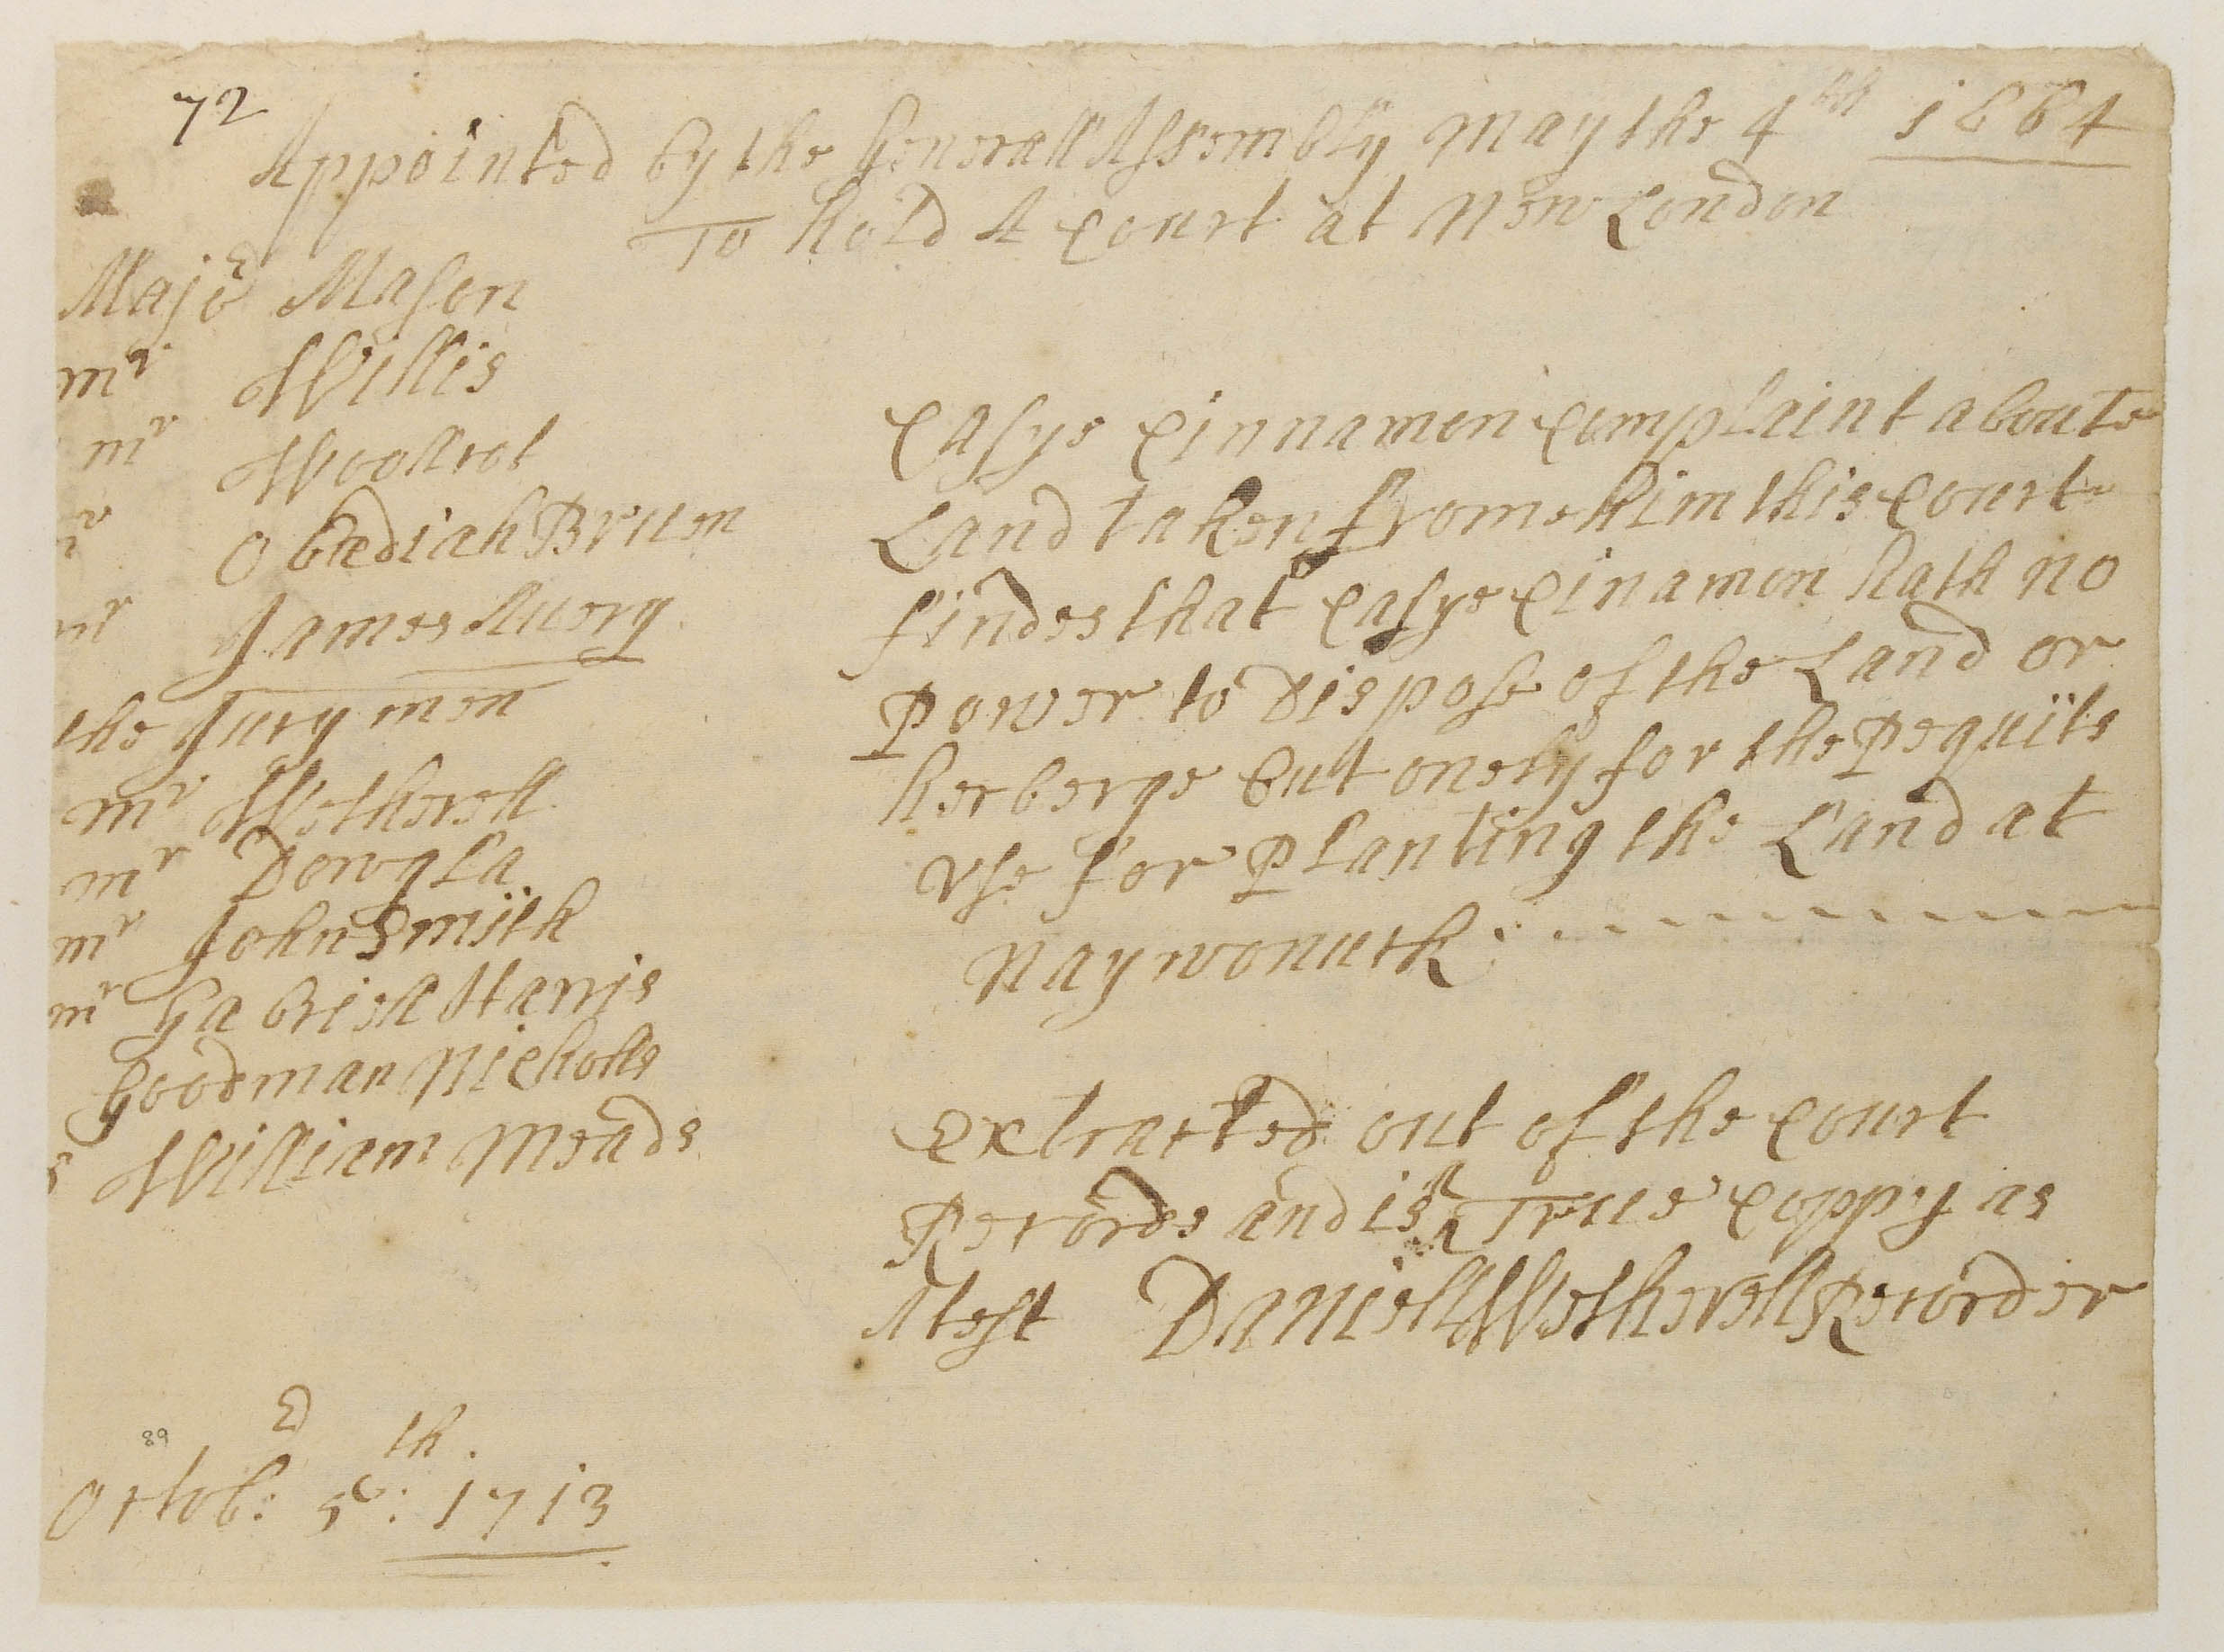 72
Appointed by the Generall Assembly May the 4th 1664
To hold A Court at New London
Major Mason
mr Willis
mr Woollcot
mr Obediah Bruen
mr James Auery
the Jury men
mr Wetherell
mr Dowgla
mr John Smith
mr Gabriell Harris
Goodman Nicholls
William Meade
Casye Cinnamon Complaint aboute
Land taken frome him this Court
findes that Casye Cinamon hath no
Power to Dispose of the Land or
herberge but onely for the Pequits
vse for Planting the Land at
Naywonuck
Extracted out of the Court
Records and is A True Coppy as
Atest Daniell Wetherell Recorder
89
Octobr: 5th: 1713